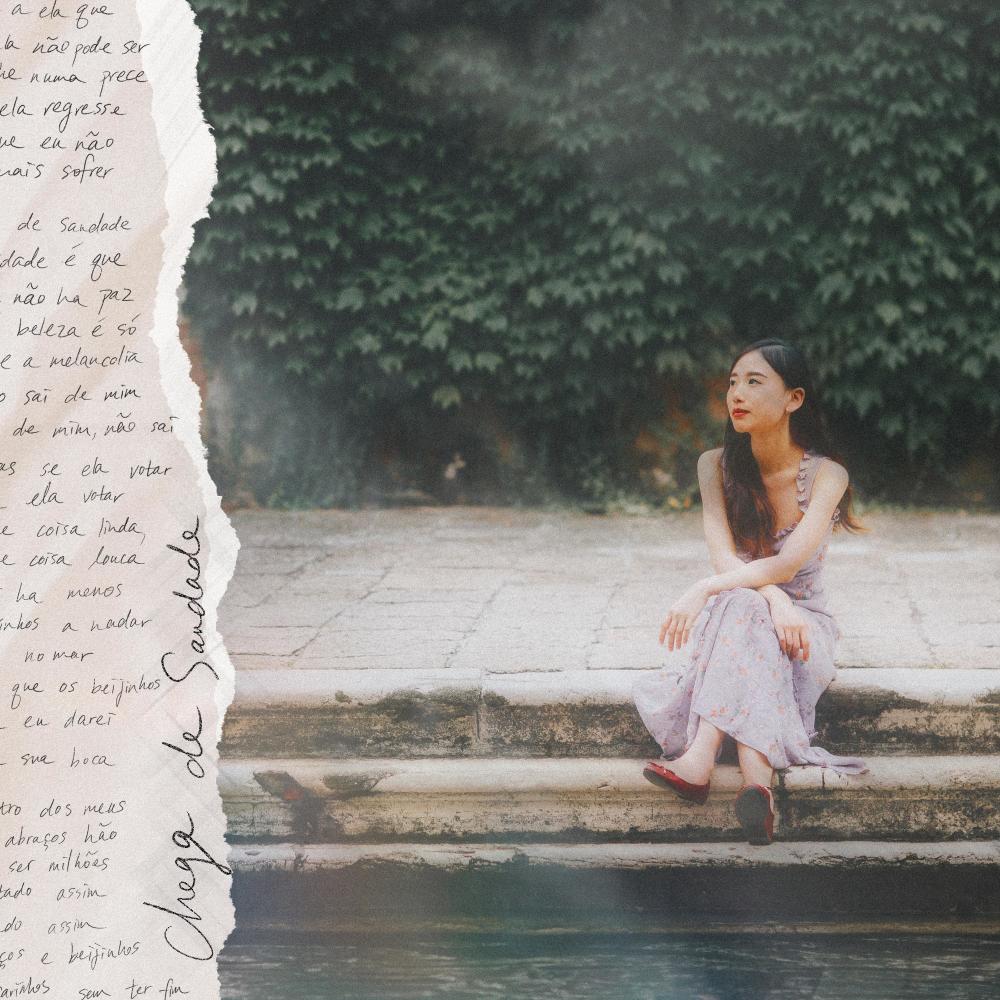 a ela que
não pode ser
numa prece
ela regresse
eu não
mais sofrer
de Saudade
é que
não ha paz
beleza é só
e a melancolia
sai de mim
de mim, não sai
se ela votar
ela votar
coisa linda,
coisa louca
ha menos
a nadar
no mar
que os beijinhos
eu darei
sua boca
dos meus
abraços hão
ser milhões
assim
assim
e beijinhos
sem ter fim
Chega de Saudade